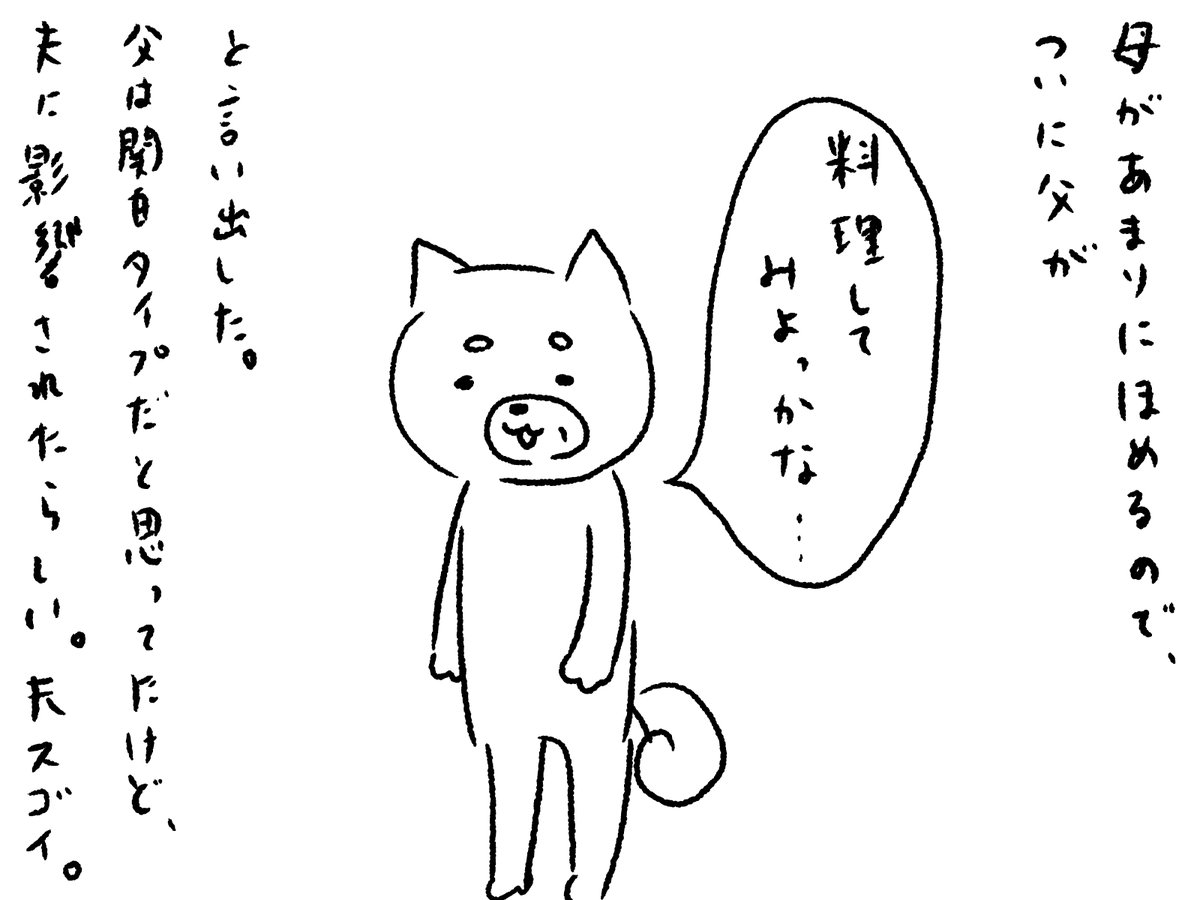 母があまりにほめるので、
ついに父が
料理して
みよっかな…
と言い出した。
父は関白タイプだと思ってたけど、
夫に影響されたらしい。夫スゴイ。